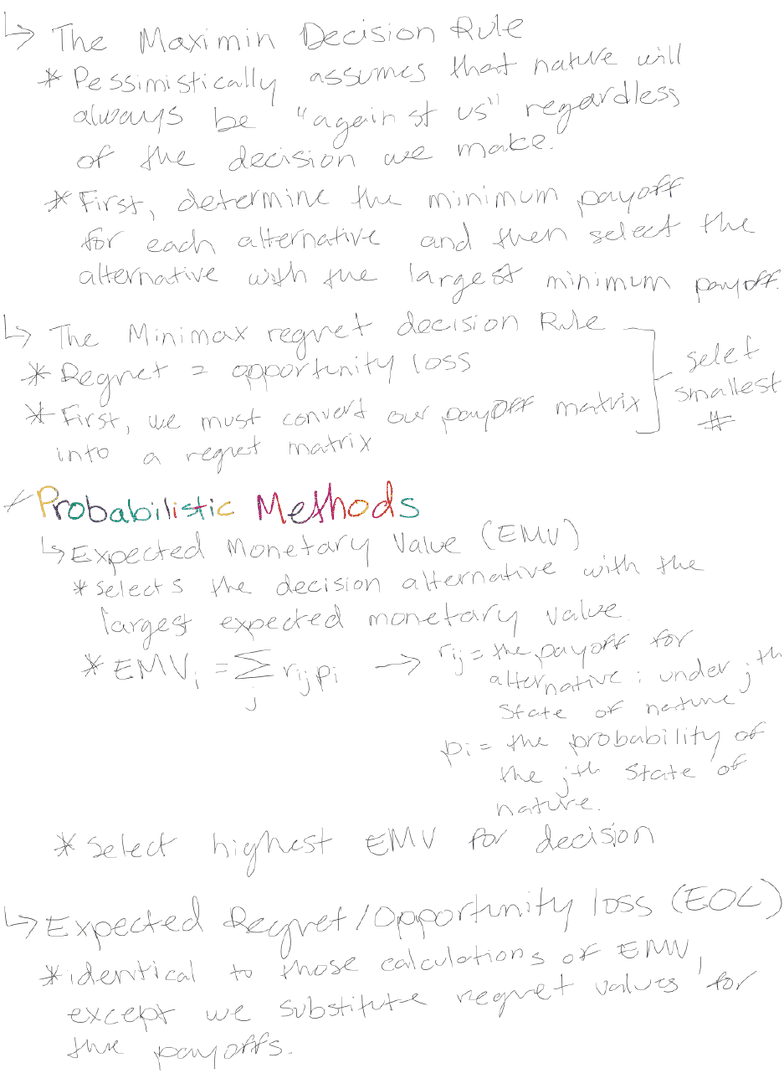 ↳ The Maximin Decision Rule
* Pessimistically assumes that nature will
always be "against us" regardless
of the decision we make.
* First, determine the minimum payoff
for each alternative and then select the
alternative with the largest minimum payoff.
↳ The Minimax regret decision Rule
* Regret = opportunity loss
* First, we must convert our payoff matrix
into a regret matrix
select
smallest
#
✓ Probabilistic Methods
↳ Expected Monetary Value (EMV)
* Selects the decision alternative with the
largest expected monetary value
* EMVᵢ = Σⱼ rᵢⱼ pᵢ → rᵢⱼ = the payoff for
alternative i under jᵗʰ
State of nature
pᵢ = the probability of
the jᵗʰ State of
nature.
* Select highest EMV for decision
↳ Expected Regret/Opportunity loss (EOL)
* identical to those calculations of EMV,
except we substitute regret values for
the payoffs.